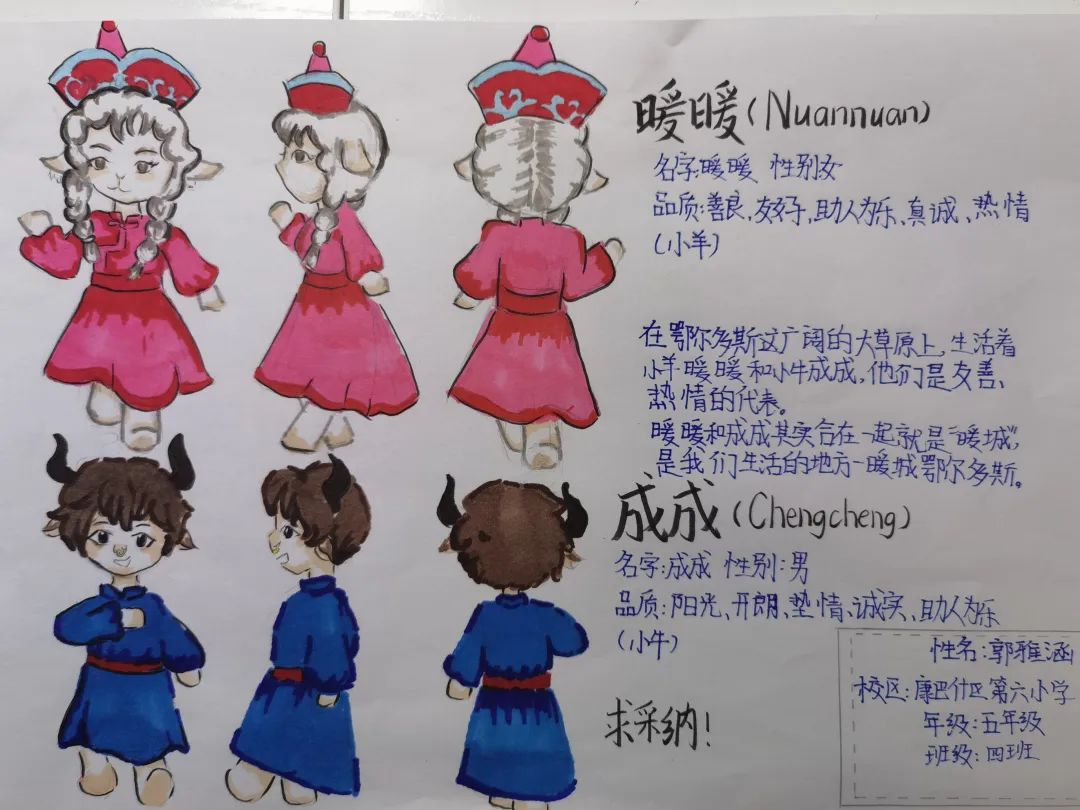 暖暖(Nuannuan)
名字:暖暖 性别女
品质:善良、友好、助人为乐、真诚、热情
(小羊)
在鄂尔多斯这广阔的大草原上,生活着
小羊暖暖和小牛成成,他们是友善、
热情的代表。
暖暖和成成其实合在一起就是“暖城”,
是我们生活的地方-暖城鄂尔多斯。
成成(Chengcheng)
名字:成成 性别:男
品质:阳光、开朗、热情、诚实、助人为乐
(小牛)
求采纳!
性名:郭雅涵
校区:康巴什区第六小学
年级:五年级
班级:四班